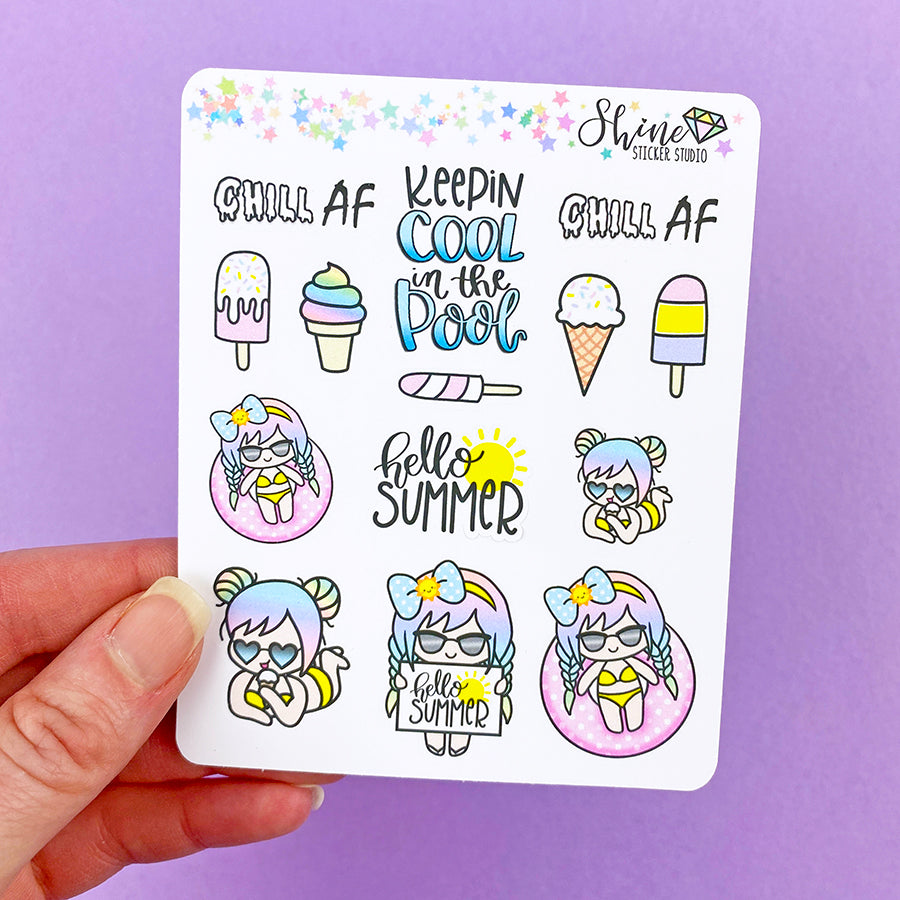 Shine
STICKER STUDIO
CHILL AF
KEEPIN
COOL
in the
Pool
CHILL AF
hello
SUMMER
hello
SUMMER